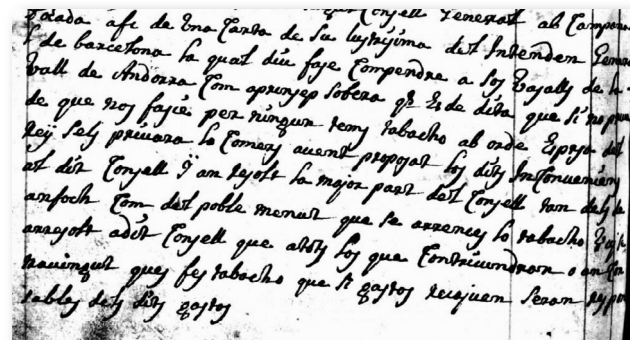 Consell General ab Campana
tocada afi de una Carta de Su Illustrissima del Intenden General
de barcelona la qual diu faje Compendre a Sos Vasalls de la
Vall de Andorra Com aprinsep Sobera qe Es de dita que Si no
de que nos fasie per ningun temps tabacho ab orde Espres del
Rey Sels privara lo Comers avent proposat los dits Inconvenients
al dit Consell Y an resolt la major part del Consell tan dels
anfoch Com del poble menut que Se arrences lo tabacho
arresolt adit Consell que atots los que Contravindran o an
navingut ques fes tabacho que Si gastos Seran
tables dels dits gastos